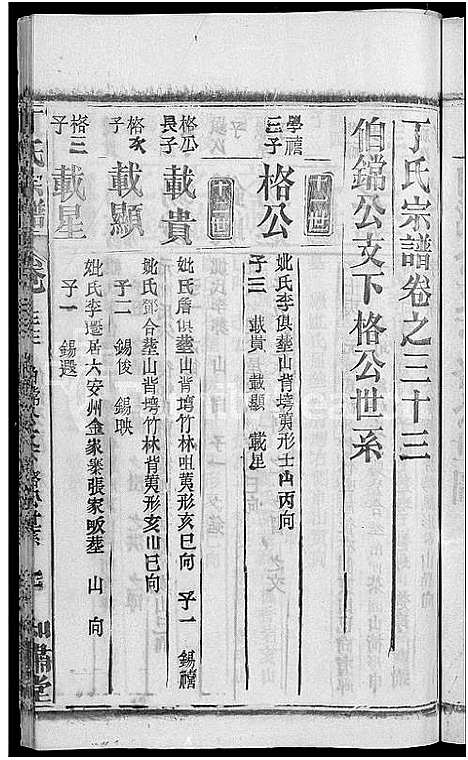 丁氏宗譜卷之三十三
伯鐺公支下格公世系
十一世
學禮三子
格公
妣氏李俱塟山背塆蕢形壬山丙向
子三 載貴 載顯 載星
十二世
格公長子
載貴
妣氏詹俱塟山背塆竹林咀蕢形亥山巳向 子一 錫禧
格次子
載顯
妣氏鄧合塟山背塆竹林背蕢形亥山巳向
子二 錫俊 錫映
格三子
載星
妣氏李遷居六安州金家寨張家畈塟 山 向
子一 錫遐
丁氏宗譜